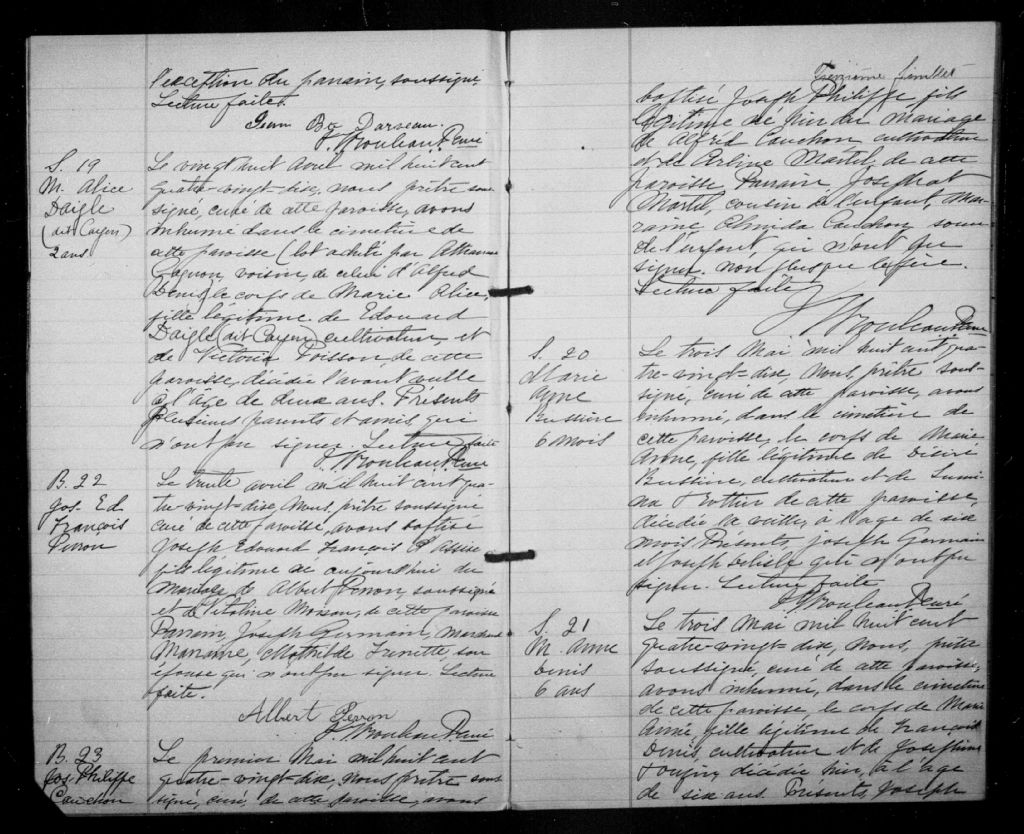 l'exception du parrain, soussigné.
Lecture faite.
Jean Bte Darveau.
J. Rouleau Ptre curé
S. 19
M. Alice
Daigle
(dit Cayen)
2 ans
Le vingt huit avril mil huit cent
quatre-vingt-dix, nous, prêtre sous-
signé, curé de cette paroisse, avons
inhumé dans le cimetière de
cette paroisse (lot acheté par
Gagnon, voisin de celui d'Alfred
Denis) le corps de Marie Alice,
fille légitime de Edouard
Daigle (dit Cayen) cultivateur, et
de Victoria Poisson, de cette
paroisse, décédée l'avant veille
à l'âge de deux ans. Présents
plusieurs parents et amis, qui
n'ont pu signer. Lecture faite
J. Rouleau Ptre curé
B. 22
Jos. Ed.
François
Perron
Le trente avril mil huit cent qua-
tre-vingt-dix, Nous, prêtre soussigné
curé de cette paroisse, avons baptisé
Joseph Edouard François d'Assise
fils légitime né aujourd'hui du
mariage de Albert Perron, soussigné
et de Vitaline Moisan, de cette paroisse
Parrain, Joseph Germain, marchand
Marraine, Mathilde Frenette, son
épouse qui n'ont pu signer. Lecture
faite.
Albert Perron
J. Rouleau Ptre curé
B. 23
Jos. Philippe
Cauchon
Le premier Mai mil huit cent
quatre-vingt-dix, nous, prêtre sous-
signé, curé, de cette paroisse, avons
feuillet
baptisé Joseph Philippe fils
légitime né hier du mariage
de Alfred Cauchon cultivateur
et de Arline Martel de cette
paroisse. Parrain, Josephat
Martel, cousin de l'enfant, Mar-
raine Elmida Cauchon soeur
de l'enfant, qui n'ont pu
signer non plus que le père.
Lecture faite
J. Rouleau Ptre curé
S. 20
Marie
Anne
Bussière
6 mois
Le trois Mai mil huit cent qua-
tre-vingt-dix, Nous, prêtre sous-
signé, curé de cette paroisse, avons
inhumé, dans le cimetière de
cette paroisse, le corps de Marie
Anne, fille légitime de Désiré
Bussière, cultivateur et de Lumi-
na Trottier de cette paroisse,
décédée la veille, à l'âge de six
mois. Présents, Joseph Germain
et Joseph Delisle qui n'ont pu
signer. Lecture faite
J. Rouleau Ptre curé
S. 21
M. Anne
Denis
6 ans
Le trois Mai mil huit cent
quatre-vingt-dix, Nous, prêtre
soussigné, curé de cette paroisse,
avons inhumé, dans le cimetière
de cette paroisse le corps de Marie
Anne fille légitime de François
Denis, cultivateur et de Josephine
décédée hier, à l'âge
de six ans. Présents, Joseph